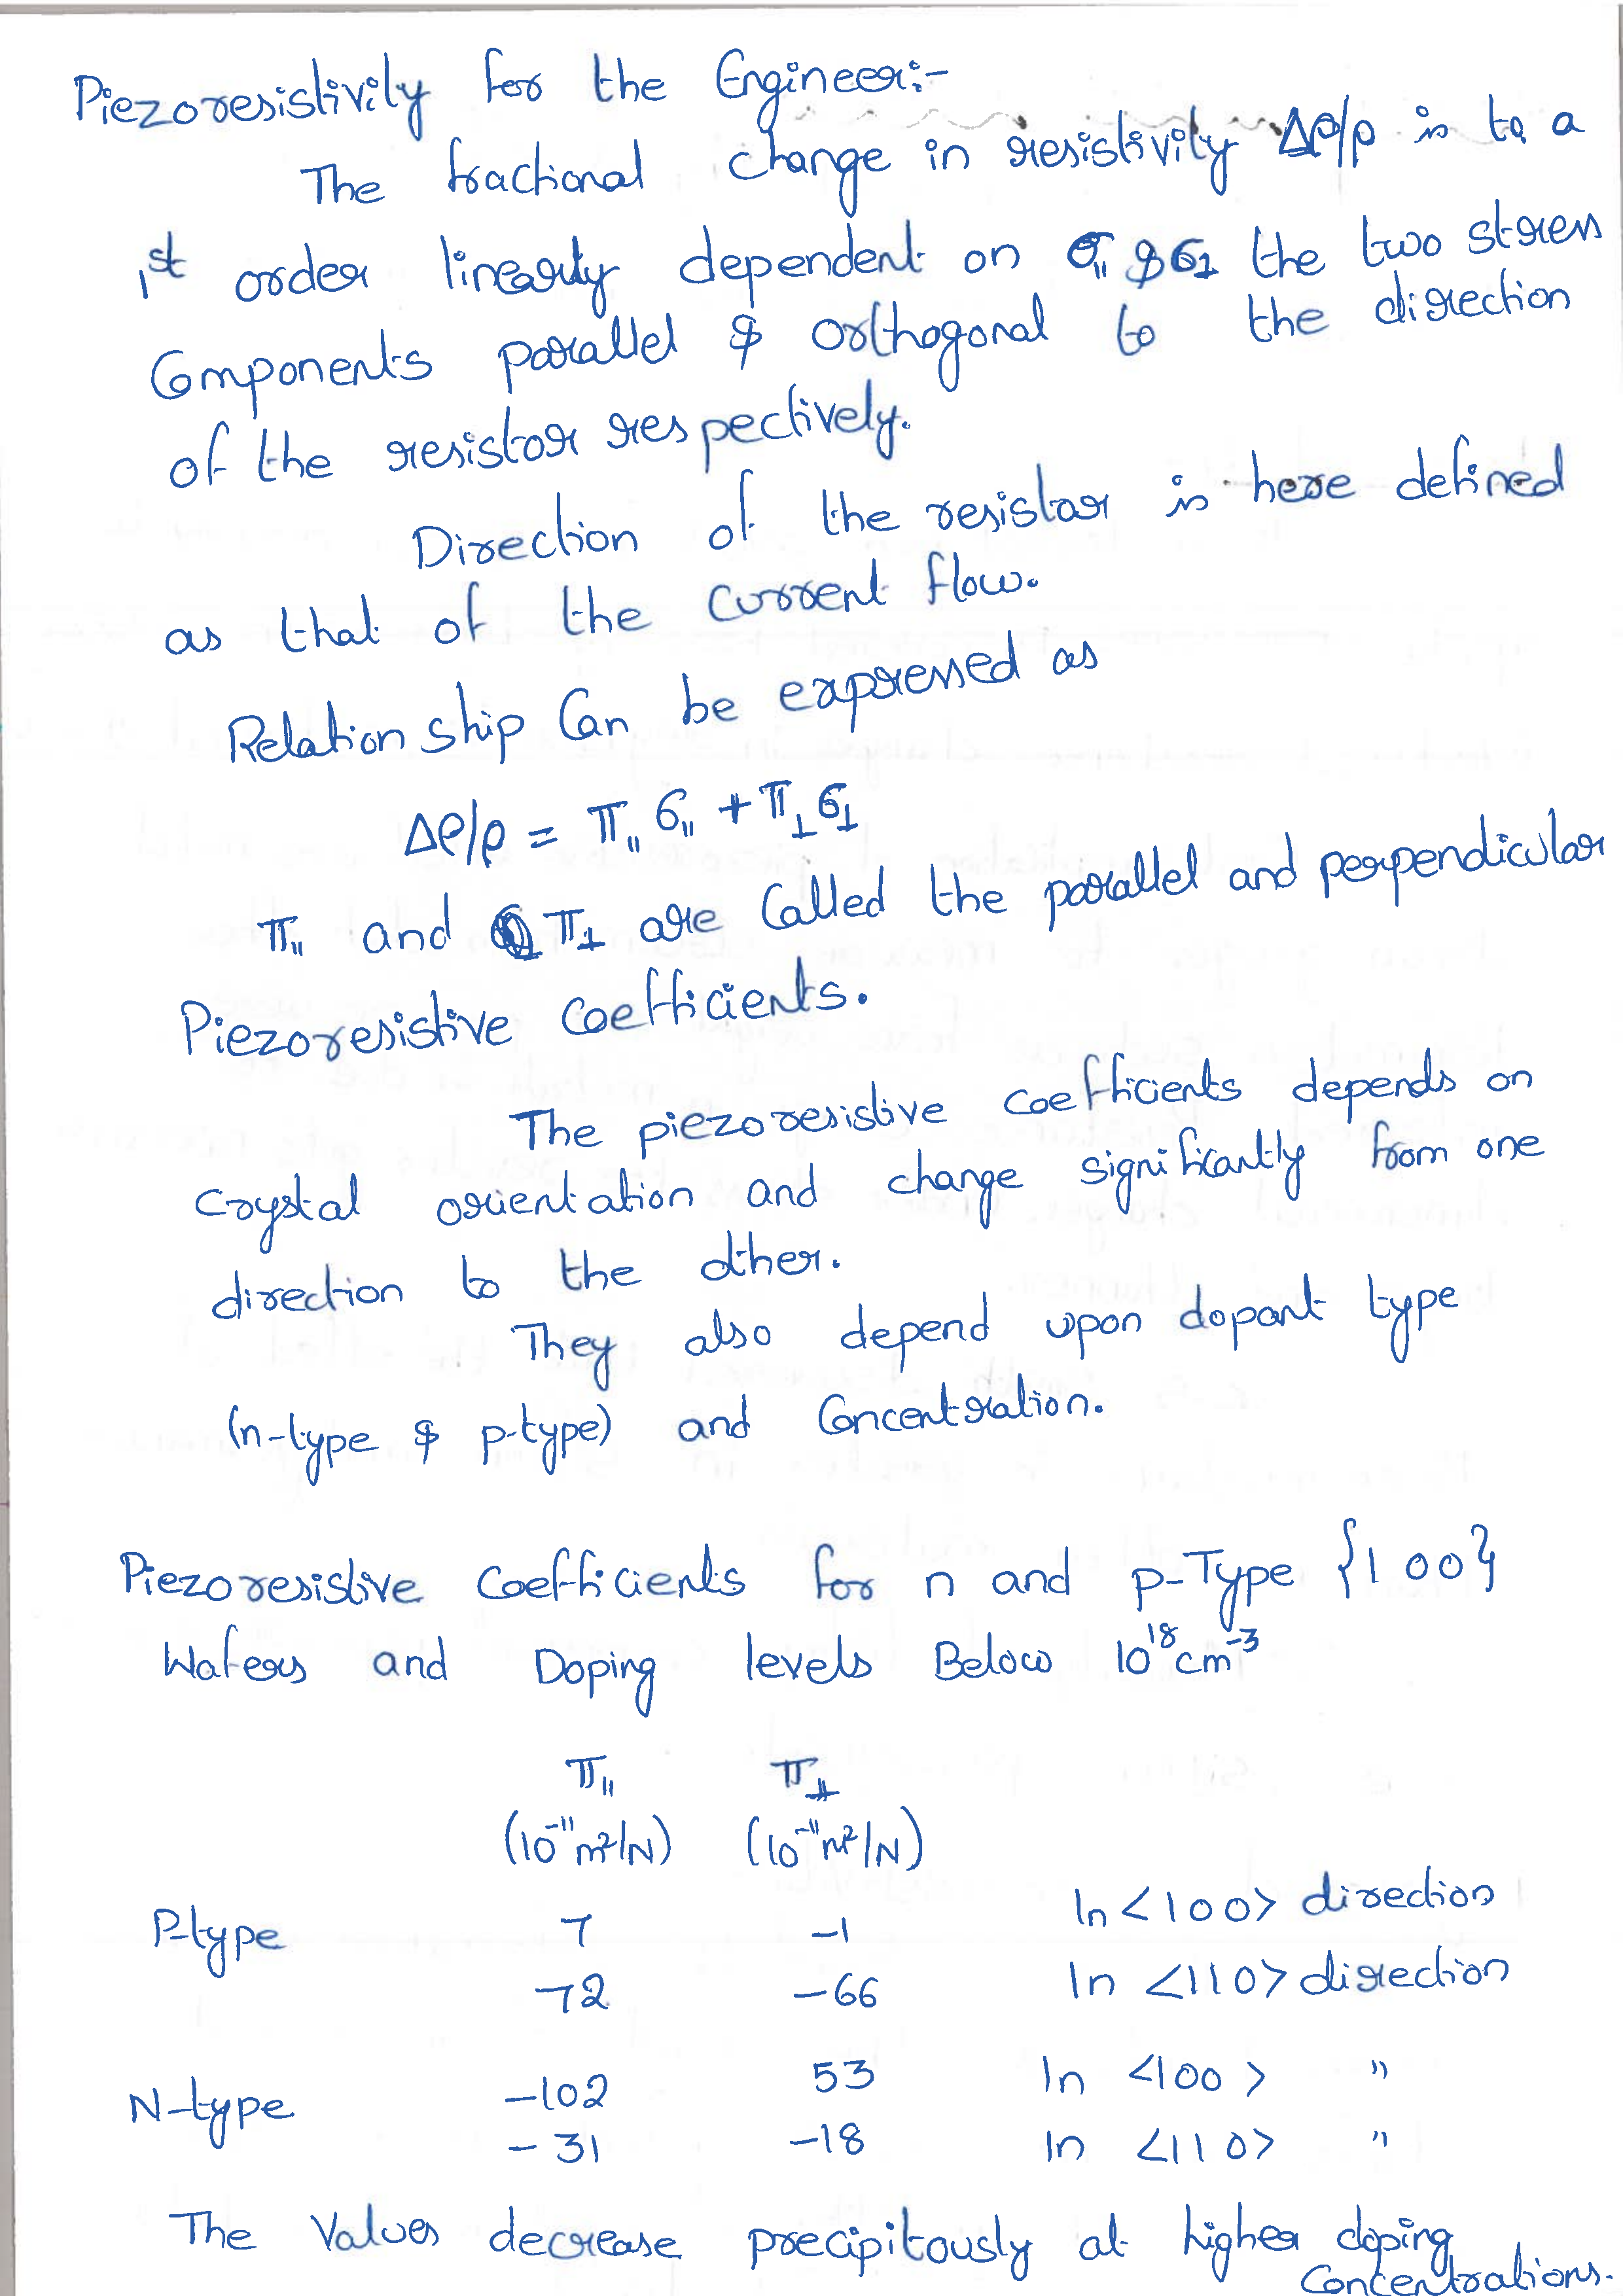 Piezoresistivity for the Engineer:-
The fractional change in resistivity Δρ/ρ is to a
1st order linearly dependent on σ∥ & σ⊥ the two stress
Components parallel & orthogonal to the direction
of the resistor respectively.
Direction of the resistor is here defined
as that of the current flow.
Relation ship Can be expressed as
Δρ/ρ = π∥ σ∥ + π⊥ σ⊥
π∥ and π⊥ are Called the parallel and perpendicular
Piezoresistive Coefficients.
The piezoresistive Coefficients depends on
crystal orientation and change significantly from one
direction to the other.
They also depend upon dopant type
(n-type & p-type) and Concentration.
Piezoresistive Coefficients for n and p-Type {100}
Wafers and Doping levels Below 10¹⁸ cm⁻³
π∥ π⊥
(10⁻¹¹ m²/N) (10⁻¹¹ m²/N)
P-type 7 -1 In <100> direction
72 -66 In <110> direction
N-type -102 53 In <100> "
-31 -18 In <110> "
The Values decrease precipitously at higher doping
Concentrations.